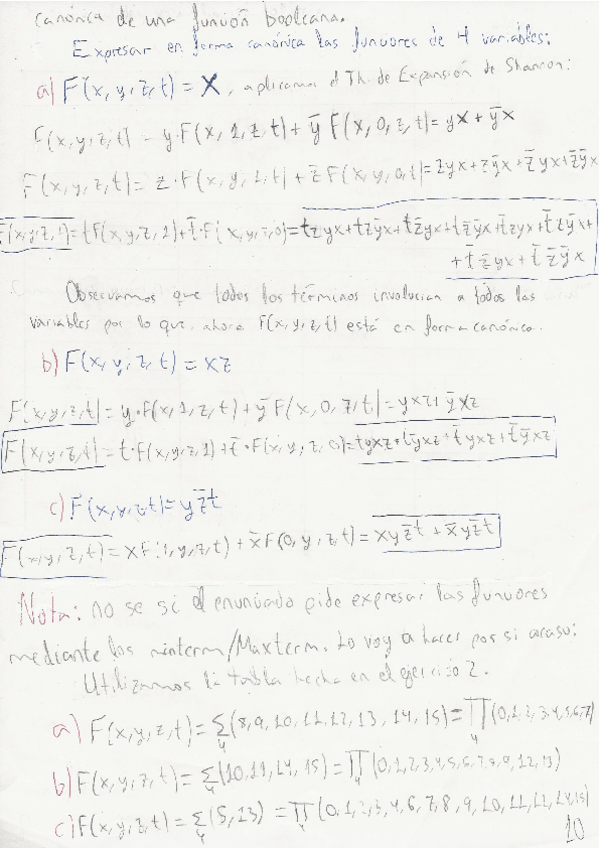 canónica de una función booleana.
Expresar en forma canónica las funciones de 4 variables:
a) F(x,y,z,t) = x, aplicamos el Th. de Expansión de Shannon:
F(x,y,z,t) = y·F(x,1,z,t) + y̅ F(x,0,z,t) = yx + y̅x
F(x,y,z,t) = z·F(x,y,1,t) + z̅ F(x,y,0,t) = zyx + zy̅x + z̅yx + z̅y̅x
F(x,y,z,t) = tF(x,y,z,1) + t̅·F(x,y,z,0) = tzyx + tzy̅x + tz̅yx + tz̅y̅x + t̅zyx + t̅zy̅x +
+ t̅z̅yx + t̅z̅y̅x
Observamos que todos los términos involucran a todas las
variables por lo que, ahora F(x,y,z,t) está en forma canónica.
b) F(x,y,z,t) = xz
F(x,y,z,t) = y·F(x,1,z,t) + y̅ F(x,0,z,t) = yxz + y̅xz
F(x,y,z,t) = t·F(x,y,z,1) + t̅·F(x,y,z,0) = tyxz + ty̅xz + t̅yxz + t̅y̅xz
c) F(x,y,z,t) = yz̅t
F(x,y,z,t) = xF(1,y,z,t) + x̅F(0,y,z,t) = xyz̅t + x̅yz̅t
Nota: no se si el enunciado pide expresar las funciones
mediante los minterm/Maxterm. Lo voy a hacer por si acaso:
Utilizamos la tabla hecha en el ejercicio 2.
a) F(x,y,z,t) = Σ₄(8,9,10,11,12,13,14,15) = ∏₄(0,1,2,3,4,5,6,7)
b) F(x,y,z,t) = Σ₄(10,11,14,15) = ∏₄(0,1,2,3,4,5,6,7,8,9,12,13)
c) F(x,y,z,t) = Σ₄(5,13) = ∏₄(0,1,2,3,4,6,7,8,9,10,11,12,14,15)
10